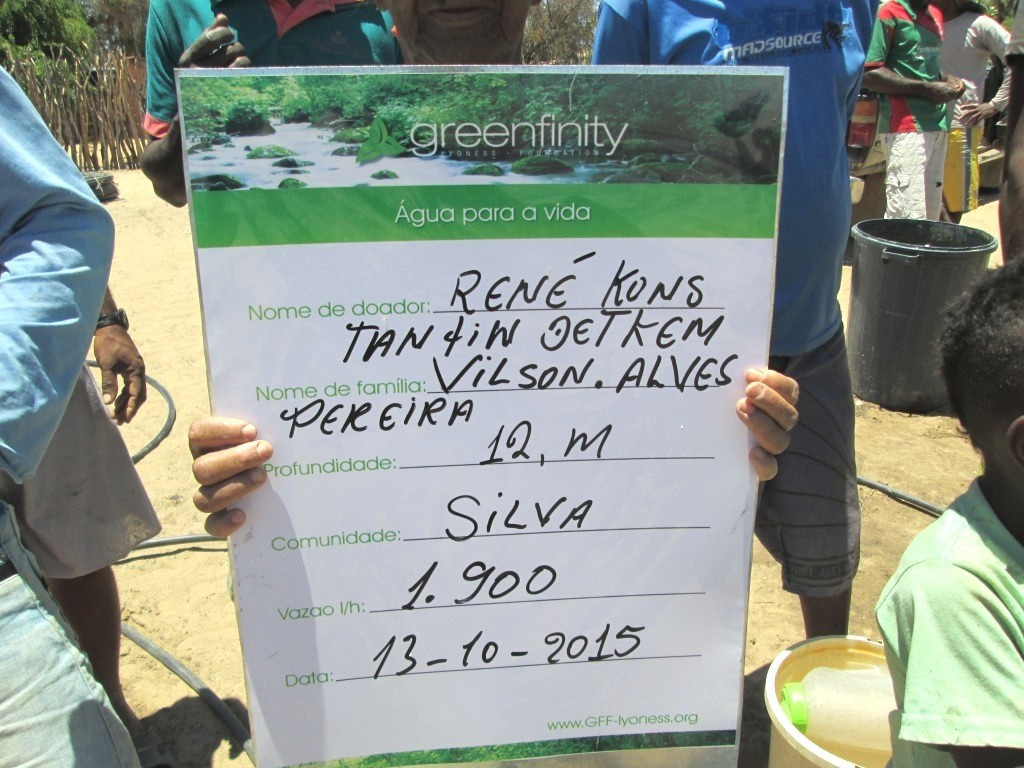 MADSOURCE
greenfinity
LYONESS - FOUNDATION
Água para a vida
Nome de doador: RENÉ KONS
TANJIN OETKEM
Nome de família: VILSON. ALVES
PEREIRA
Profundidade: 12, M
Comunidade: SILVA
Vazao l/h: 1.900
Data: 13-10-2015
www.GFF-lyoness.org